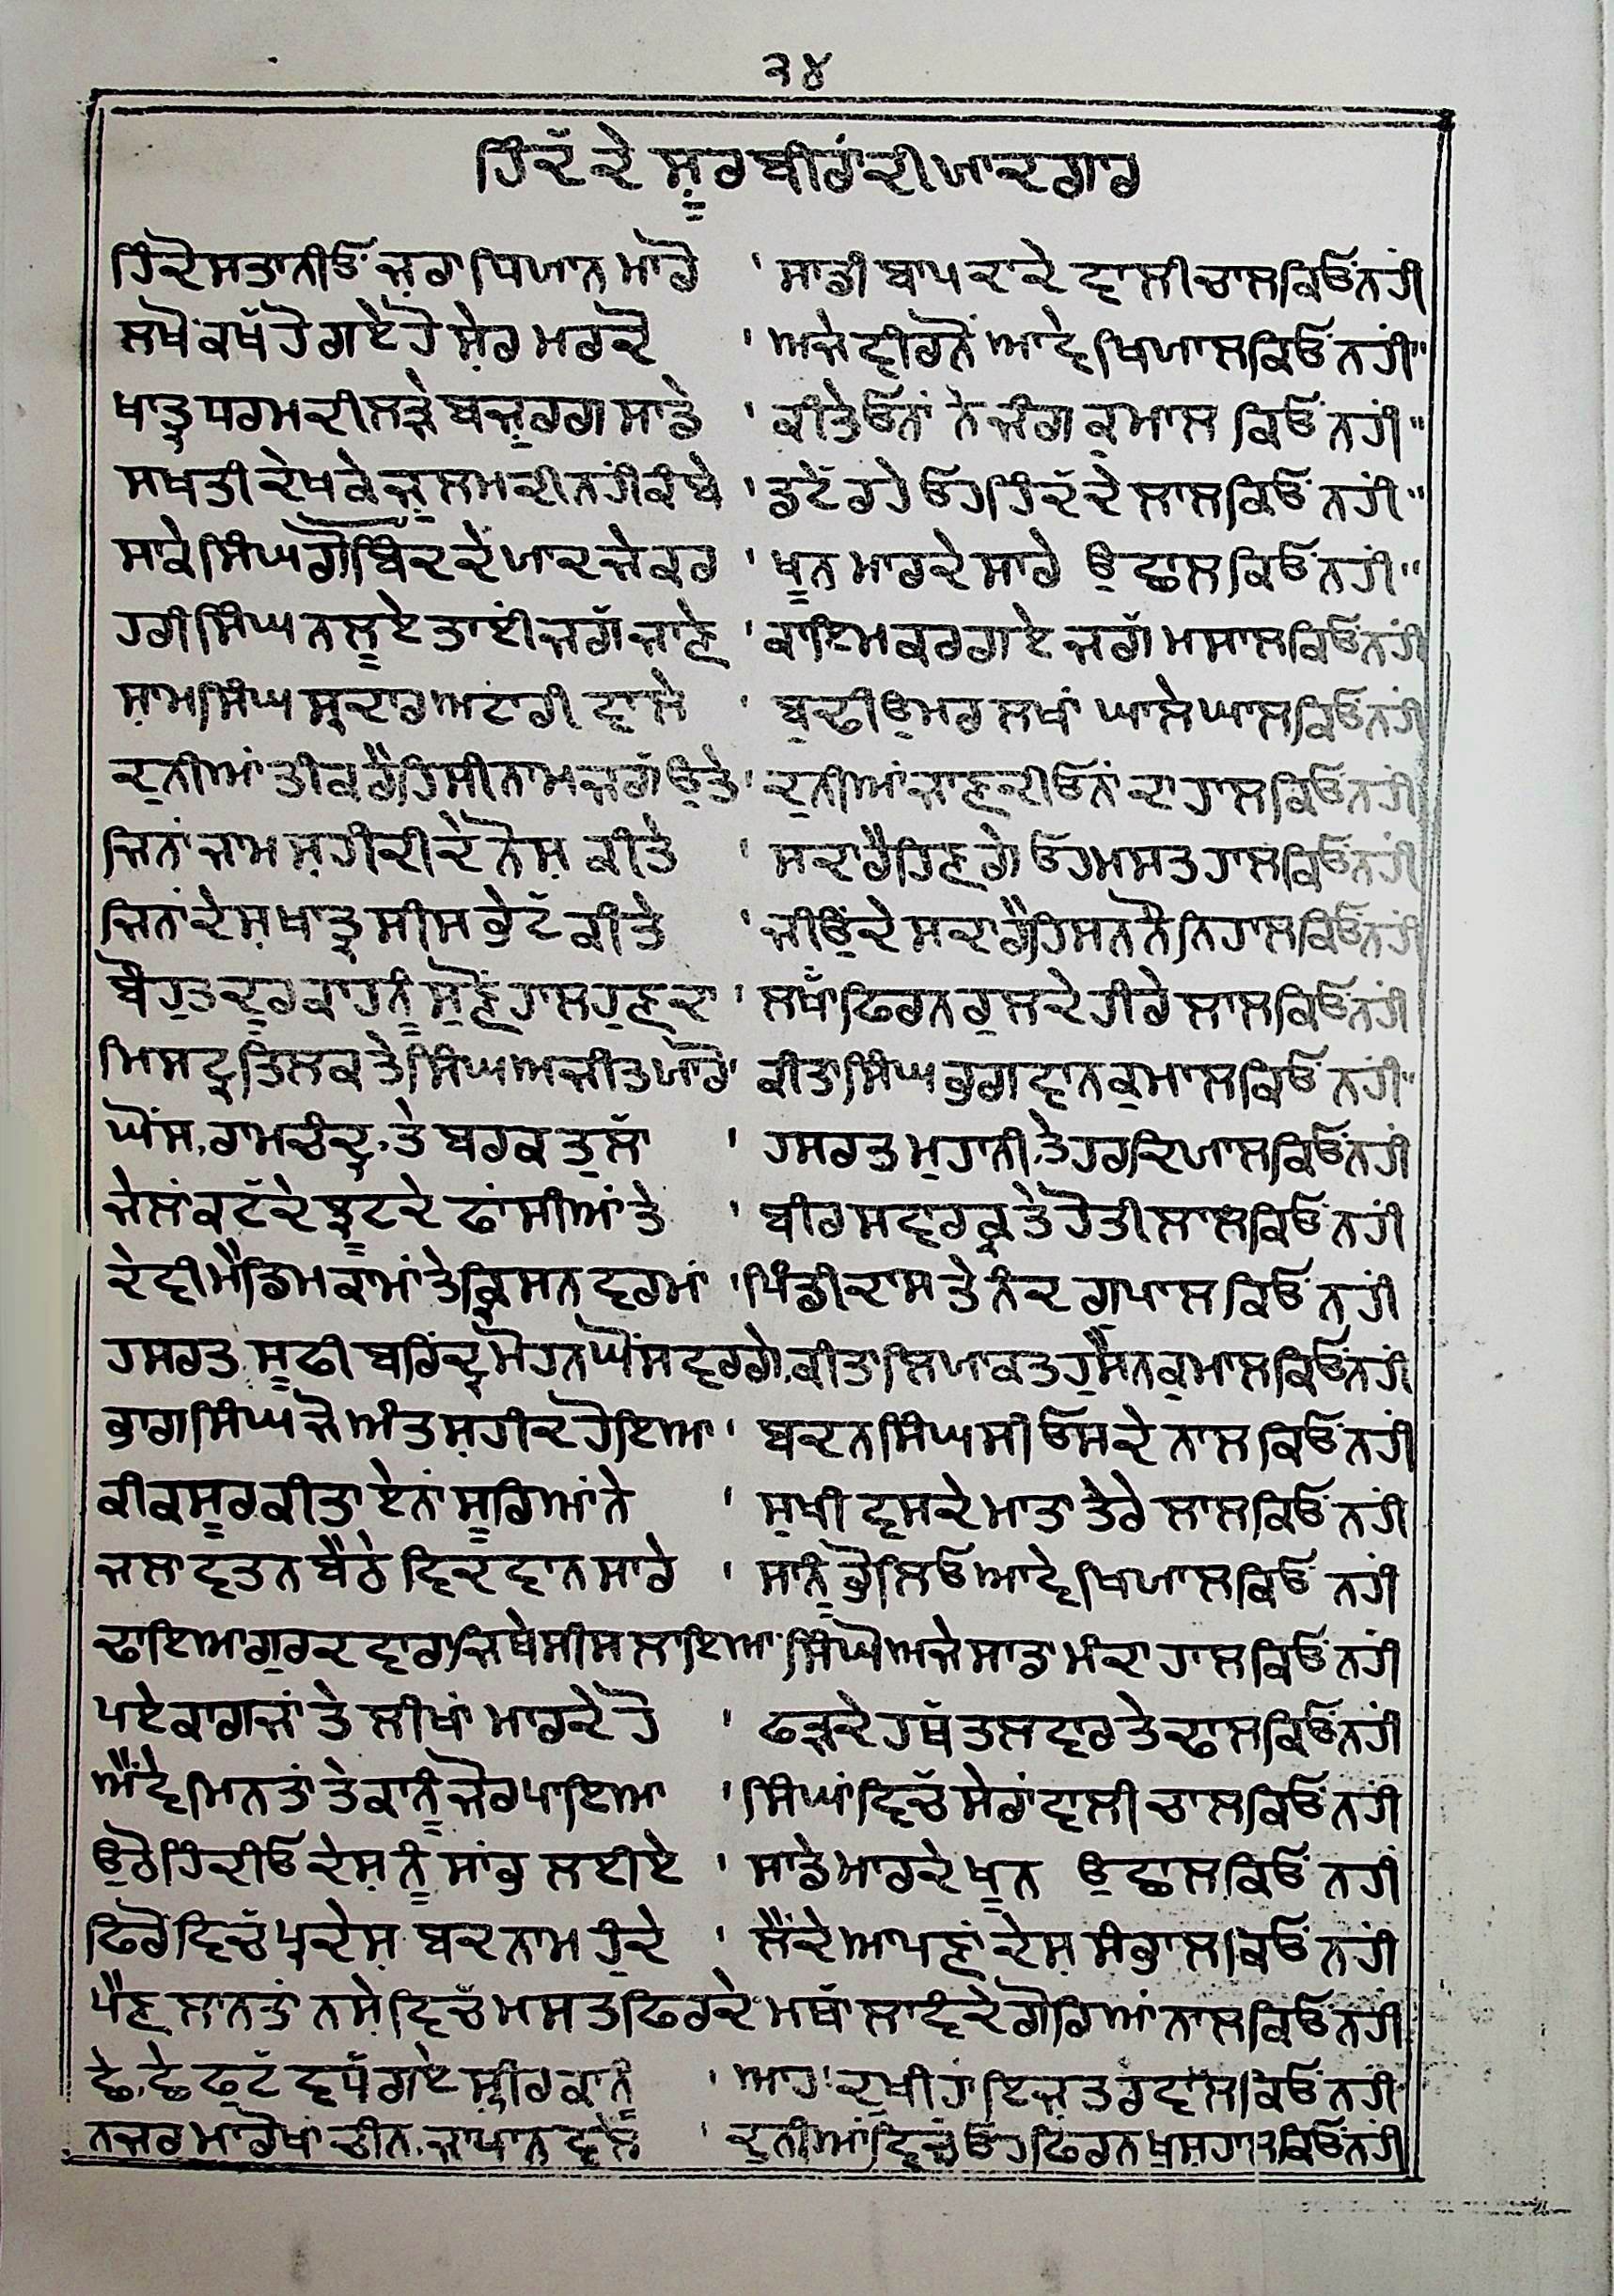 ੨੪
ਹਿੰਦ ਦੇ ਸੂਰਬੀਰਾਂ ਦੀ ਯਾਦਗਾਰ
ਹਿੰਦੋਸਤਾਨੀਓਂ ਜ਼ਰਾ ਧਿਯਾਨ ਮਾਰੋ ' ਸਾਡੀ ਬਾਪ ਦਾਦੇ ਵਾਲੀ ਚਾਲ ਕਿਓਂ ਨਹੀਂ
ਲਖੋਂ ਕਖੱ ਹੋ ਗਏ ਹੋ ਸ਼ੇਰ ਮਰਦੋ ' ਅਜੇ ਵੀ ਰਨੋਂ ਆਵੇ ਖਿਯਾਲ ਕਿਓਂ ਨਹੀਂ"
ਖਾਤ੍ਰ ਧਰਮ ਦੀ ਲੜੇ ਬਜ਼ੁਰਗ ਸਾਡੇ ' ਕੀਤੇ ਓਨਾਂ ਨੇ ਜੰਗ ਕੁਮਾਲ ਕਿਓਂ ਨਹੀਂ"
ਸਖਤੀ ਦੇਖ ਕੇ ਜ਼ੁਲਮ ਦੀ ਨਹੀਂ ਕੰਬੇ ' ਡਟੇੱ ਰਹੇ ਓਹ ਹਿੰਦ ਦੇ ਲਾਲ ਕਿਓਂ ਨਹੀਂ"
ਸਾਕੇ ਸਿੰਘ ਗੋਬਿੰਦ ਦੇ ਯਾਦ ਜੇਕਰ ' ਖੂਨ ਮਾਰਦੇ ਸਾਰੇ ਉਛਾਲ ਕਿਓਂ ਨਹੀਂ"
ਹਰੀ ਸਿੰਘ ਨਲੂਏ ਤਾਈਂ ਜਗੱ ਜਾਣੇ ' ਕਾਇਮ ਕਰ ਗਏ ਜਗੱ ਮਸਾਲ ਕਿਓਂ ਨਹੀਂ
ਸ਼ਾਮ ਸਿੰਘ ਸ੍ਰਦਾਰ ਅਟਾਰੀ ਵਾਲੇ ' ਬੁਢੀ ਉਮਰ ਲਖਾਂ ਘਾਲੇ ਘਾਲ ਕਿਓਂ ਨਹੀਂ
ਦੁਨੀਆਂ ਤੀਕ ਰੈਹਿਸੀ ਨਾਮ ਜਗੱ ਉਤੇ ' ਦੁਨੀਆਂ ਜਾਣਦੀ ਓਨਾਂ ਦਾ ਹਾਲ ਕਿਓਂ ਨਹੀਂ
ਜਿਨਾਂ ਜਾਮ ਸ਼ਹੀਦੀ ਦੇ ਨੋਸ਼ ਕੀਤੇ ' ਸਦਾ ਰੈਹਿਣਗੇ ਓਹ ਮਸਤ ਹਾਲ ਕਿਓਂ ਨਹੀਂ
ਜਿਨਾਂ ਦੇਸ਼ ਖਾਤ੍ਰ ਸੀਸ ਭੇਟੱ ਕੀਤੇ ' ਜੀਉਂਦੇ ਸਦਾ ਰੈਹਿਸਨ ਨੌਨਿਹਾਲ ਕਿਓਂ ਨਹੀਂ
ਬੌਹੁਤ ਦੂਰ ਕਾਹਨੂੰ ਸੁਣੋਂ ਹਾਲ ਹੁਣ ਦਾ ' ਲਖੱਾਂ ਫਿਰਨ ਰੁਲਦੇ ਹੀਰੇ ਲਾਲ ਕਿਓਂ ਨਹੀਂ
ਮਿਸਟ੍ਰ ਤਿਲਕ ਤੇ ਸਿੰਘ ਅਜੀਤ ਯਾਰੋ ' ਕੀਤਾ ਸਿੰਘ ਭਗਵਾਨ ਕੁਮਾਲ ਕਿਓਂ ਨਹੀਂ"
ਘੋਸ਼, ਰਾਮਚੰਦ੍ਰ, ਤੇ ਬਰਕਤੁਲੱਾ ' ਹਸਰਤ ਮੁਹਾਨੀ, ਤੇ ਹਰਦਿਯਾਲ ਕਿਓਂ ਨਹੀਂ
ਜੇਲਾਂ ਕਟੱਦੇ ਝੂਟਦੇ ਫਾਂਸੀਆਂ ਤੇ ' ਬੀਰ ਸਵਾਰਕ੍ਰ ਤੇ ਹੋਤੀ ਲਾਲ ਕਿਓਂ ਨਹੀਂ
ਦੇਵੀ ਮੈਡਿਮ ਕਾਮਾਂ ਤੇ ਕ੍ਰਿਸਨ ਵਰਮਾਂ ' ਪਿੰਡੀ ਦਾਸ ਤੇ ਨੰਦ ਗੁਪਾਲ ਕਿਓਂ ਨਹੀਂ
ਹਸਰਤ, ਸੂਫੀ ਬਰਿੰਦ੍ਰ ਮੋਹਨ ਘੋਸ ਵਰਗੇ, ਕੀਤਾ ਲਿਯਾਕਤ ਹੁਸੈਨ ਕੁਮਾਲ ਕਿਓਂ ਨਹੀਂ
ਭਾਗ ਸਿੰਘ ਜੋ ਅੰਤ ਸ਼ਹੀਦ ਹੋਇਆ ' ਬਦਨ ਸਿੰਘ ਸੀ ਓਸਦੇ ਨਾਲ ਕਿਓਂ ਨਹੀਂ
ਕੀ ਕਸੂਰ ਕੀਤਾ ਏਨਾਂ ਸੂਰਿਆਂ ਨੇ ' ਸੁਖੀ ਵਸਦੇ ਮਾਤਾ ਤੇਰੇ ਲਾਲ ਕਿਓਂ ਨਹੀਂ
ਜਲਾਵਤਨ ਬੈਠੇ ਫਿਦਵਾਨ ਸਾਰੇ ' ਸਾਨੂੰ ਭੋਲਿਓ ਆਵੇ ਖਿਯਾਲ ਕਿਓਂ ਨਹੀਂ
ਢਾਇਆ ਗੁਰਦਵਾਰਾ ਜਿਥੇ ਸੀਸ ਲਾਇਆ ' ਸਿੰਘੋ ਅਜੇ ਸਾਡਾ ਮੰਦਾ ਹਾਲ ਕਿਓਂ ਨਹੀਂ
ਪਏ ਕਾਗਜਾਂ ਤੇ ਲੀਖਾਂ ਮਾਰਦੇ ਹੋ ' ਫੜਦੇ ਹਥੱ ਤਲਵਾਰ ਤੇ ਢਾਲ ਕਿਓਂ ਨਹੀਂ
ਐਂਵੇ ਮਿਨਤਾਂ ਤੇ ਕਾਨੂੰ ਜੋਰ ਪਾਇਆ ' ਸਿੰਘਾਂ ਵਿਚੱ ਸੇਰਾਂ ਵਾਲੀ ਚਾਲ ਕਿਓਂ ਨਹੀਂ
ਉਠੋ ਹਿੰਦੀਓ ਦੇਸ਼ ਨੂੰ ਸਾਂਭ ਲਈਏ ' ਸਾਡੇ ਮਾਰਦੇ ਖੂਨ ਉਛਾਲ ਕਿਓਂ ਨਹੀਂ
ਫਿਰੋ ਵਿਚੱ ਪ੍ਰਦੇਸ਼ ਬਦਨਾਮ ਹੁੰਦੇ ' ਲੈਂਦੇ ਆਪਣਾਂ ਦੇਸ਼ ਸੰਭਾਲ ਕਿਓਂ ਨਹੀਂ
ਪੈਣ ਲਾਨਤਾਂ ਨਸ਼ੇ ਵਿਚੱ ਮਸਤ ਫਿਰਦੇ ' ਮਥੱਾ ਲਾਵੰਦੇ ਗੋਰਿਆਂ ਨਾਲ ਕਿਓਂ ਨਹੀਂ
ਛੇ, ਛੇ ਫੁਟੱ ਵਧੱ ਗਏ ਸ਼੍ਰੀਰ ਕਾਨੂੰ ' ਦੁਖੀ ਹਾਂ ਇਜ਼ਤ ਰਵਾਲ ਕਿਓਂ ਨਹੀਂ
ਨਜ਼ਰ ਮਾਰੋ ਖਾਂ ਚੀਨ, ਜਾਪਾਨ ਵਲੇ ' ਦੁਨੀਆਂ ਵਿਚੱ ਓਹ ਫਿਰਨ ਖੁਸ਼ਹਾਲ ਕਿਓਂ ਨਹੀਂ